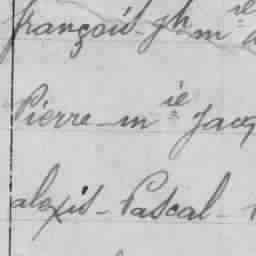 françois - jh m ie
Pierre - m ie Jacq
alexis - Pascal -